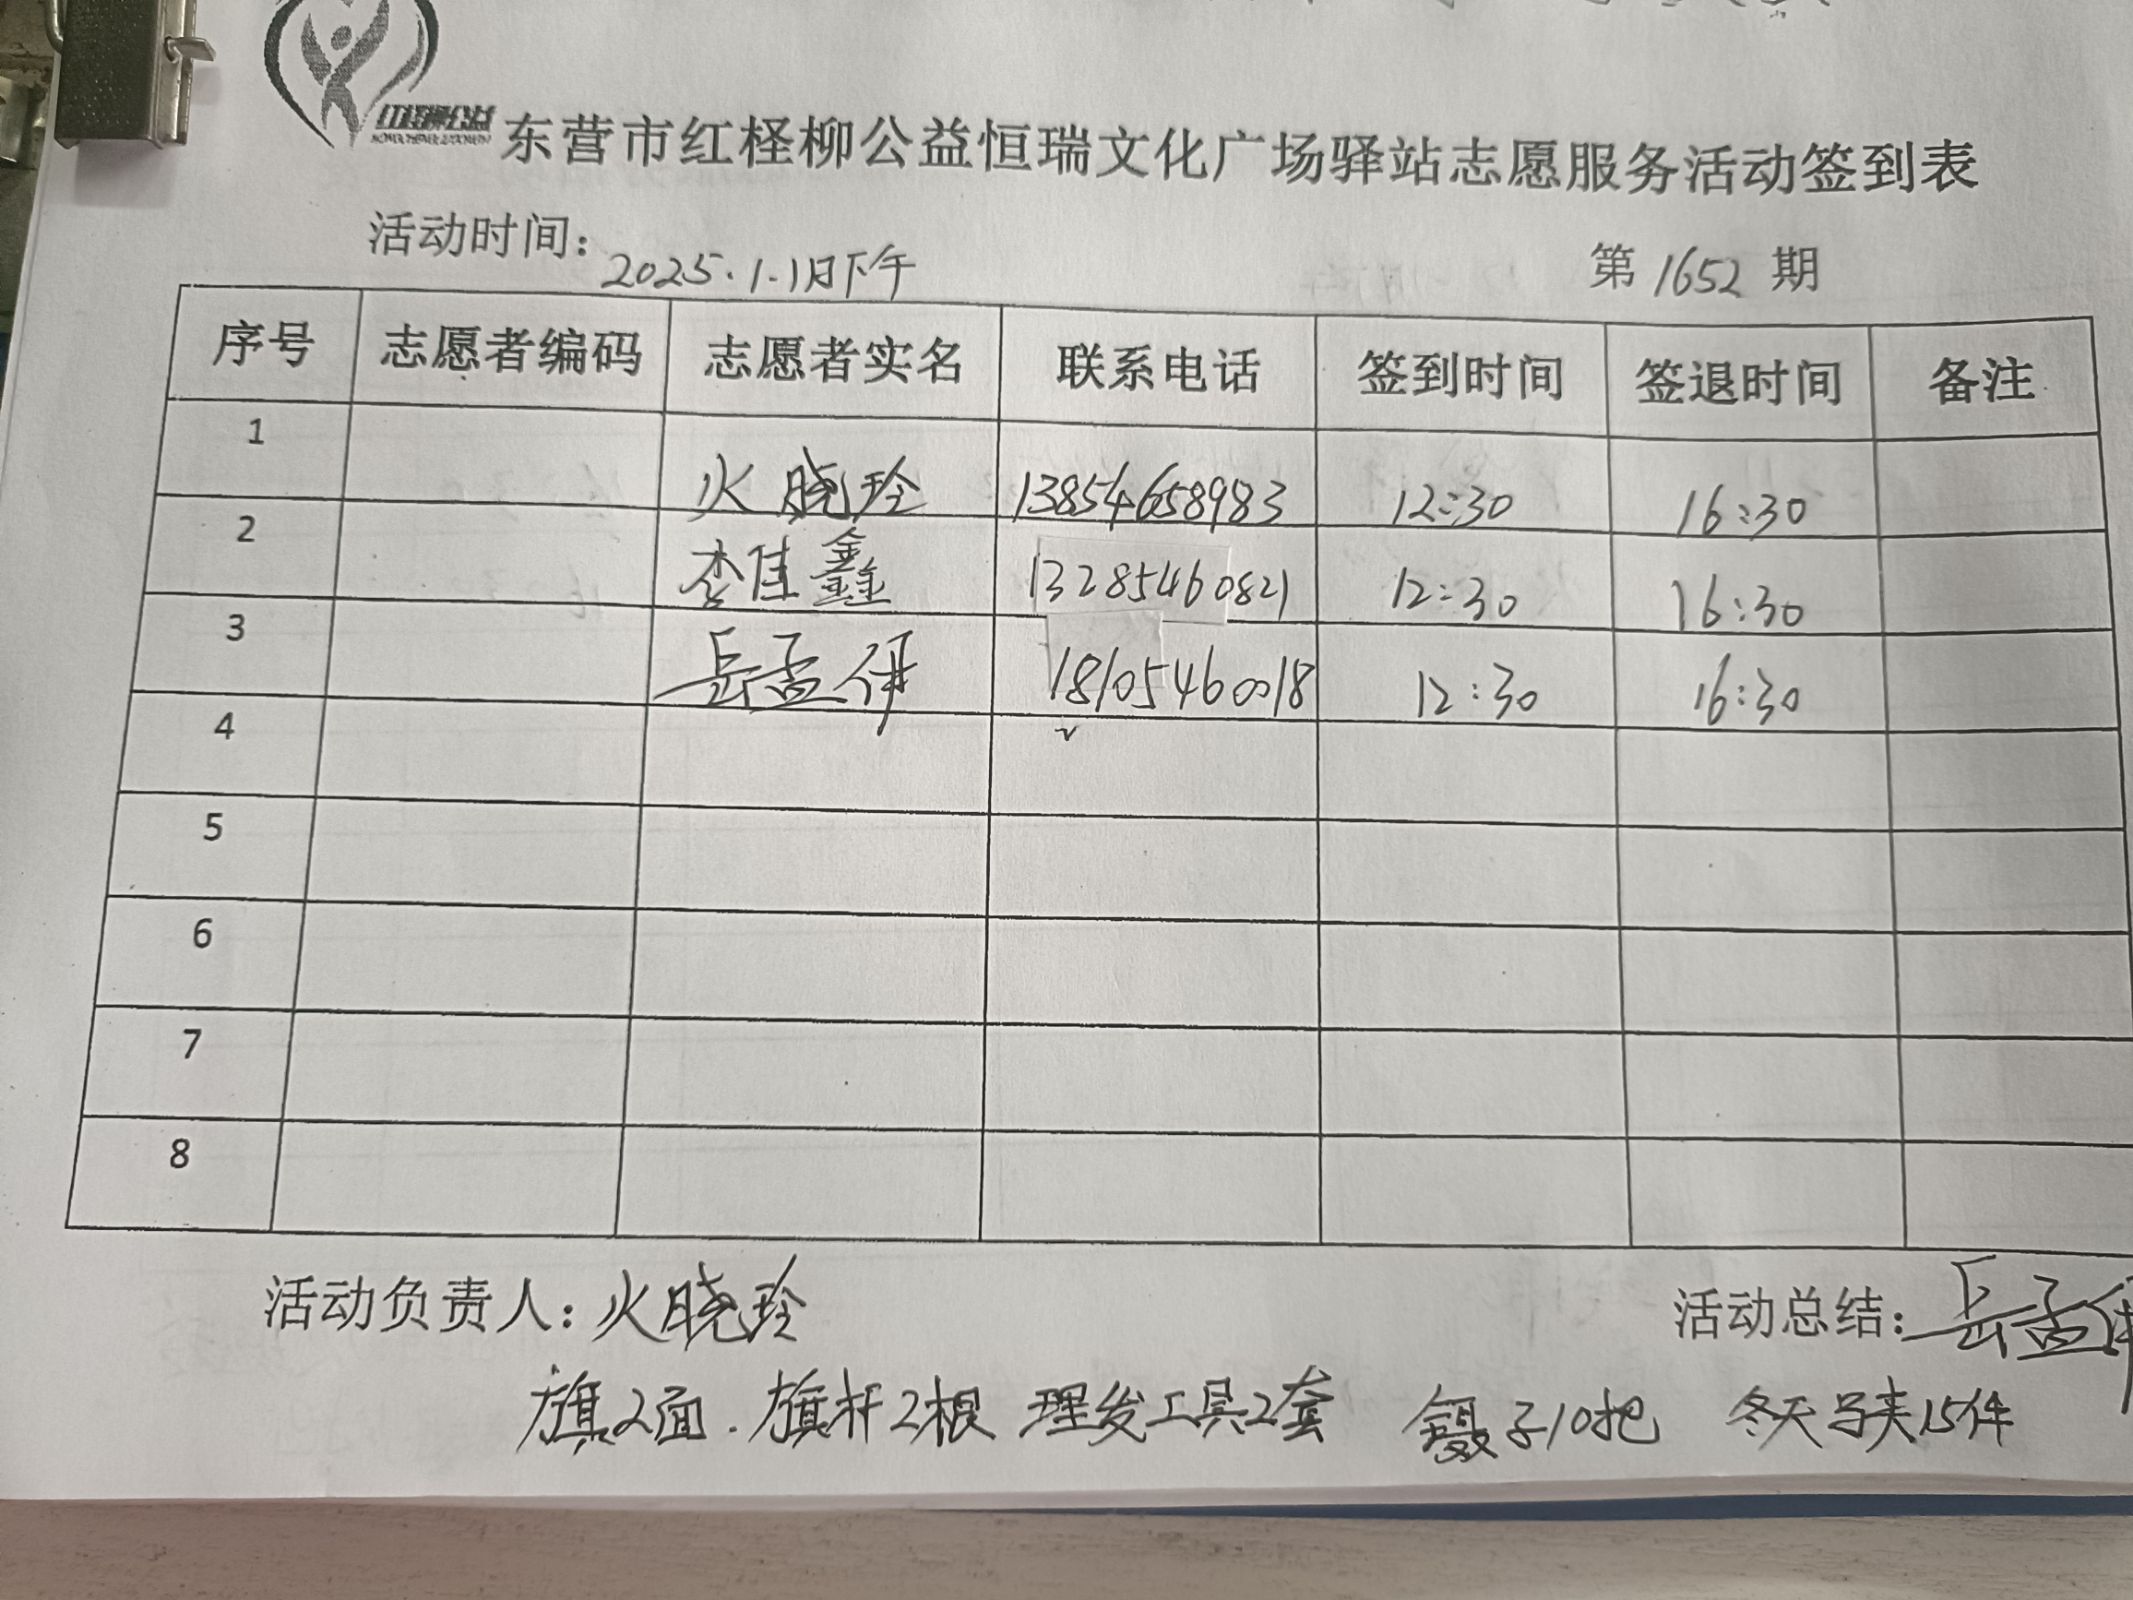 红柽柳公益
东营市红柽柳公益恒瑞文化广场驿站志愿服务活动签到表
活动时间：2025.1.1日下午 第1652期
序号 志愿者编码 志愿者实名 联系电话 签到时间 签退时间 备注
1 火晓玲 13854658983 12:30 16:30
2 李佳鑫 13285460821 12:30 16:30
3 岳孟伊 18105460018 12:30 16:30
4
5
6
7
8
活动负责人：火晓玲 活动总结：岳孟伊
旗2面．旗杆2根 理发工具2套 镊子10把 冬天马夹15件